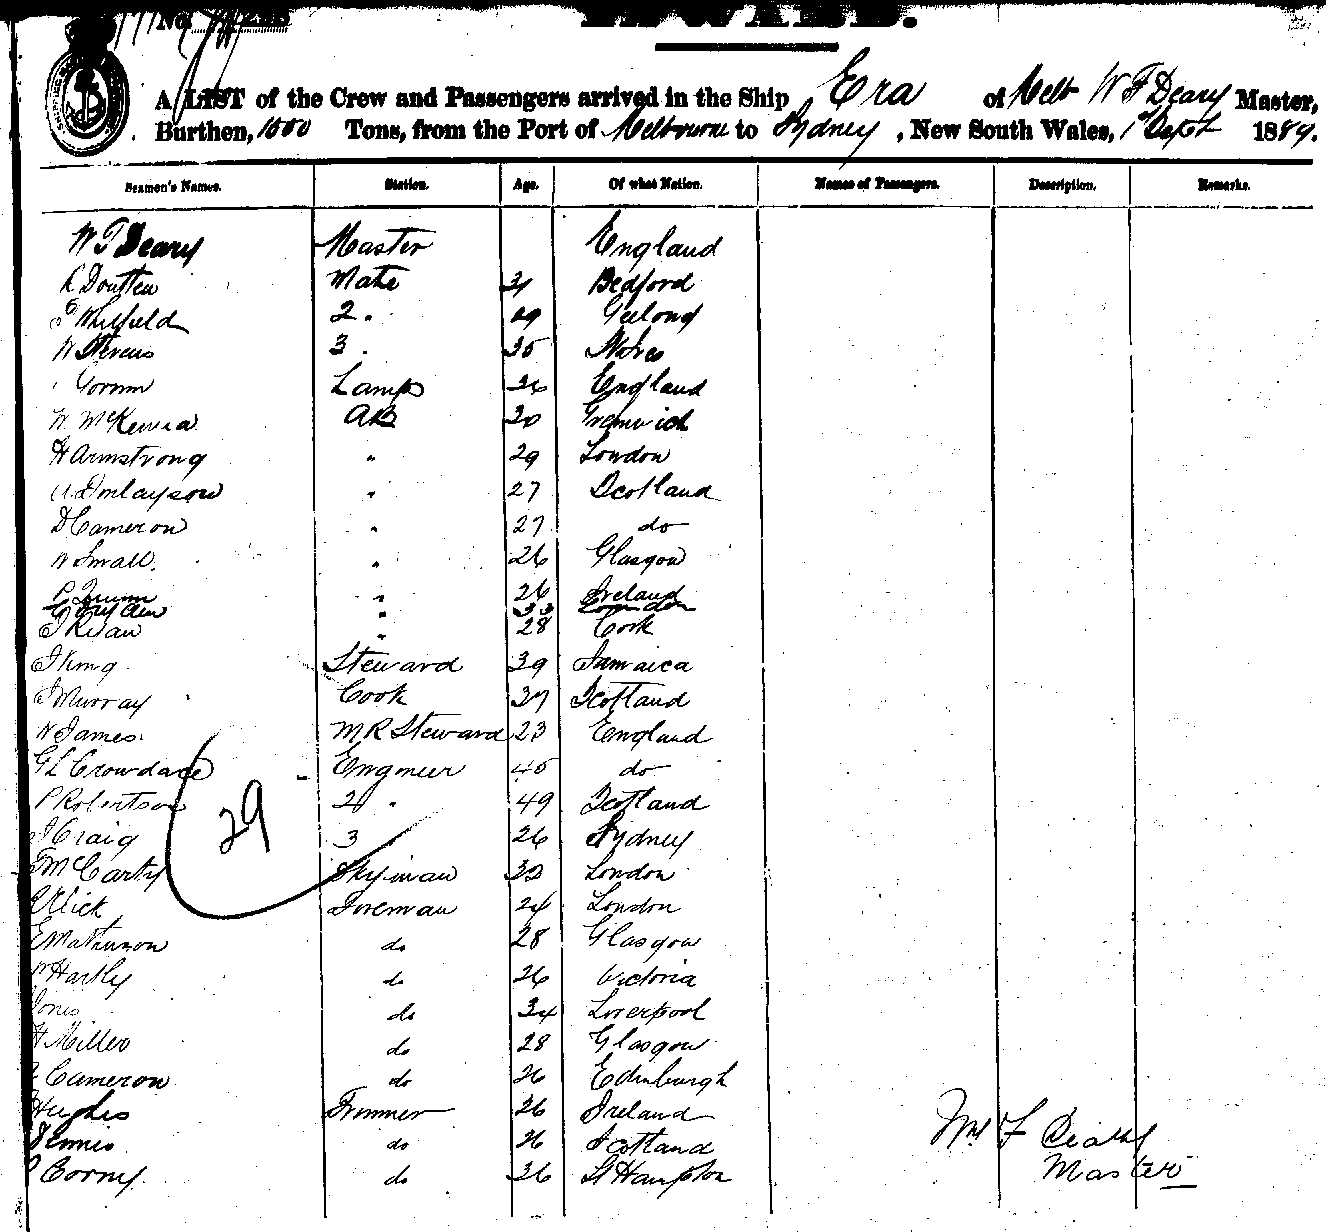 No.
INWARD.
A LIST of the Crew and Passengers arrived in the Ship Era of Melb W F Deary Master,
Burthen, 1500 Tons, from the Port of Melbourne to Sydney, New South Wales, 1st Sept 1889.
Seamen's Names. Station. Age. Of what Nation. Names of Passengers. Description. Remarks.
W F Deary Master England
R Doutten Mate 31 Bedford
Whitfield 2 " 29 Geelong
W Stevens 3 " 35 Wales
Gorum Lamps 36 England
W McKenna AB 30 Greenwich
H Armstrong " 29 London
Finlayson " 27 Scotland
D Cameron " 27 do
W Small " 26 Glasgow
P Quinn " 26 Ireland
" 33 London
J Ryan " 28 Cork
J King Steward 39 Jamaica
J Murray Cook 37 Scotland
W James M R Steward 23 England
G L Crowdace Engineer 45 do
P Robertson 2 " 49 Scotland
J Craig 3 26 Sydney
McCarty 32 London
Fireman 24 London
E Mathinson do 28 Glasgow
W Hartly do 26 Victoria
Jones do 34 Liverpool
H Miller do 28 Glasgow
Cameron do 26 Edinburgh
Hughes Trimmer 26 Ireland
Dennis do 26 Scotland
Corny do 36 St Hampton
29
Wm F Deary
Master